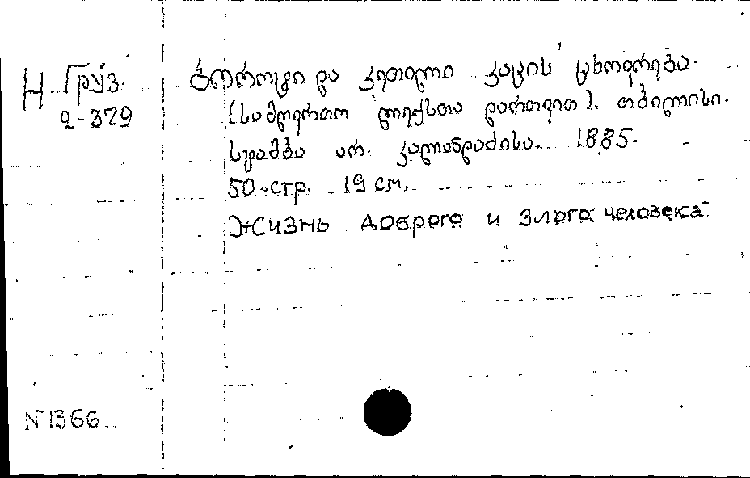 Н Груз.
2-379
ბოროტი და კეთილი კაცის ცხოვრება.
(სამღერთო ლექსთა დართვით). თბილისი.
სტამბა არ. კალანდაძისა. 1885.
50 стр. 19 см.
Жизнь доброго и злого человека.
N 1366